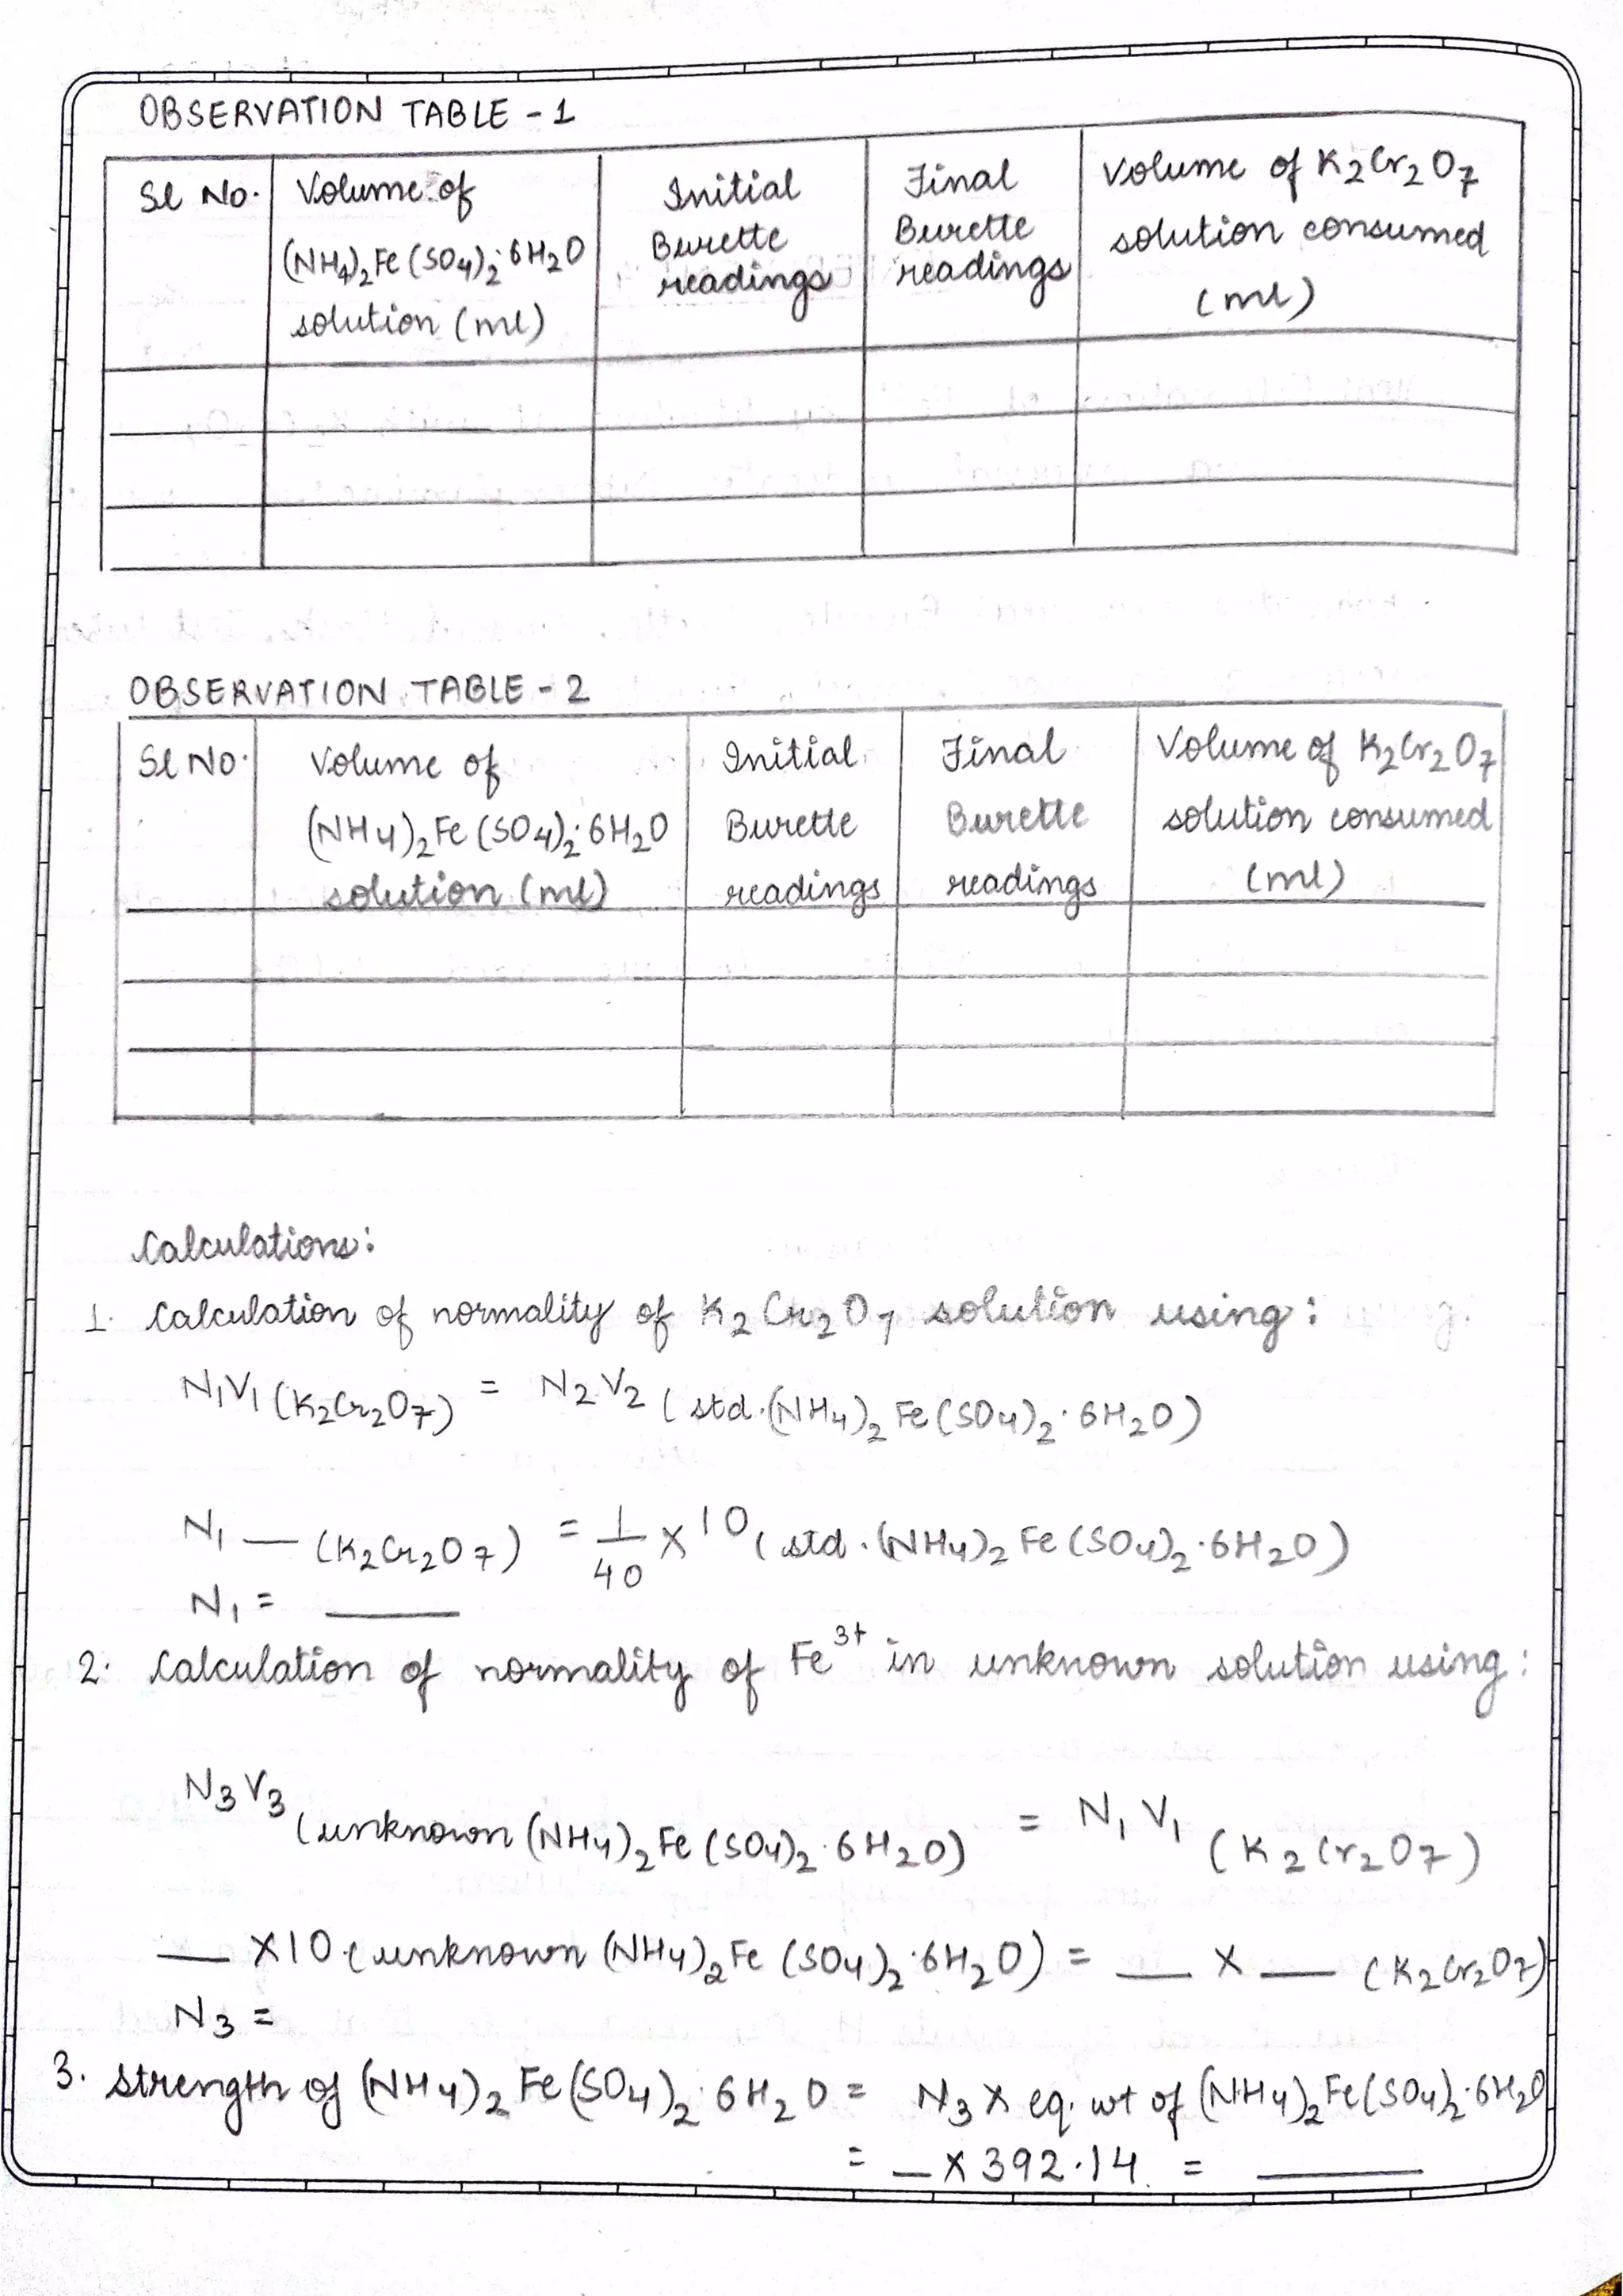 OBSERVATION TABLE - 1
Sl No.
Volume of
(NH4)2Fe(SO4)2·6H2O
solution (ml)
Initial
Burette
readings
Final
Burette
readings
Volume of K2Cr2O7
solution consumed
(ml)
OBSERVATION TABLE - 2
Sl No.
Volume of
(NH4)2Fe(SO4)2·6H2O
solution (ml)
Initial
Burette
readings
Final
Burette
readings
Volume of K2Cr2O7
solution consumed
(ml)
Calculations:
1. Calculation of normality of K2Cr2O7 solution using:
N1V1 (K2Cr2O7) = N2V2 (std.(NH4)2Fe(SO4)2·6H2O)
N1 — (K2Cr2O7) = 1/40 × 10 (std.(NH4)2Fe(SO4)2·6H2O)
N1 = ___
2. Calculation of normality of Fe3+ in unknown solution using:
N3V3 (unknown (NH4)2Fe(SO4)2·6H2O) = N1V1 (K2Cr2O7)
__ ×10 (unknown (NH4)2Fe(SO4)2·6H2O) = __ × __ (K2Cr2O7)
N3 =
3. Strength of (NH4)2Fe(SO4)2·6H2O = N3 × eq. wt of (NH4)2Fe(SO4)2·6H2O
= _ × 392.14 = ____